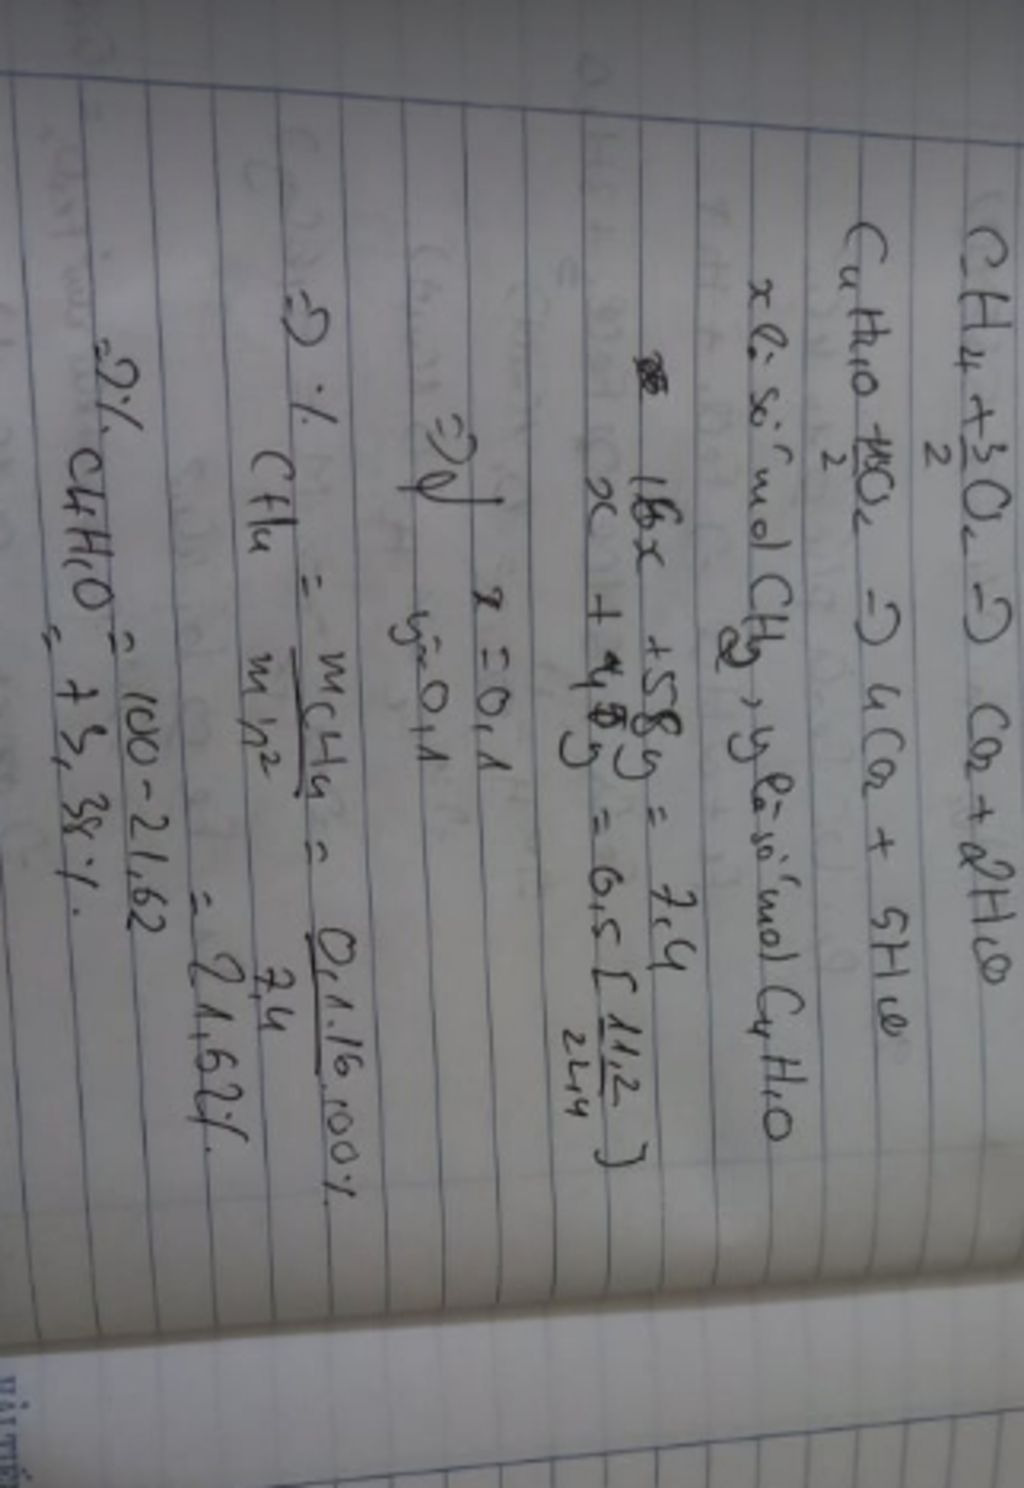 CH4 + 3/2 O2 => CO2 + 2H2O
C4H10 + 13/2 O2 => 4CO2 + 5H2O
x là số mol CH4, y là số mol C4H10
16x + 58y = 7,4
x + 4y = 0,5 [11,2/22,4]
=> x = 0,1
y = 0,1
=> % CH4 = mCH4/m h² = 0,1.16/7,4 .100%
= 21,62%.
=> % C4H10 = 100 - 21,62
= 78,38%.